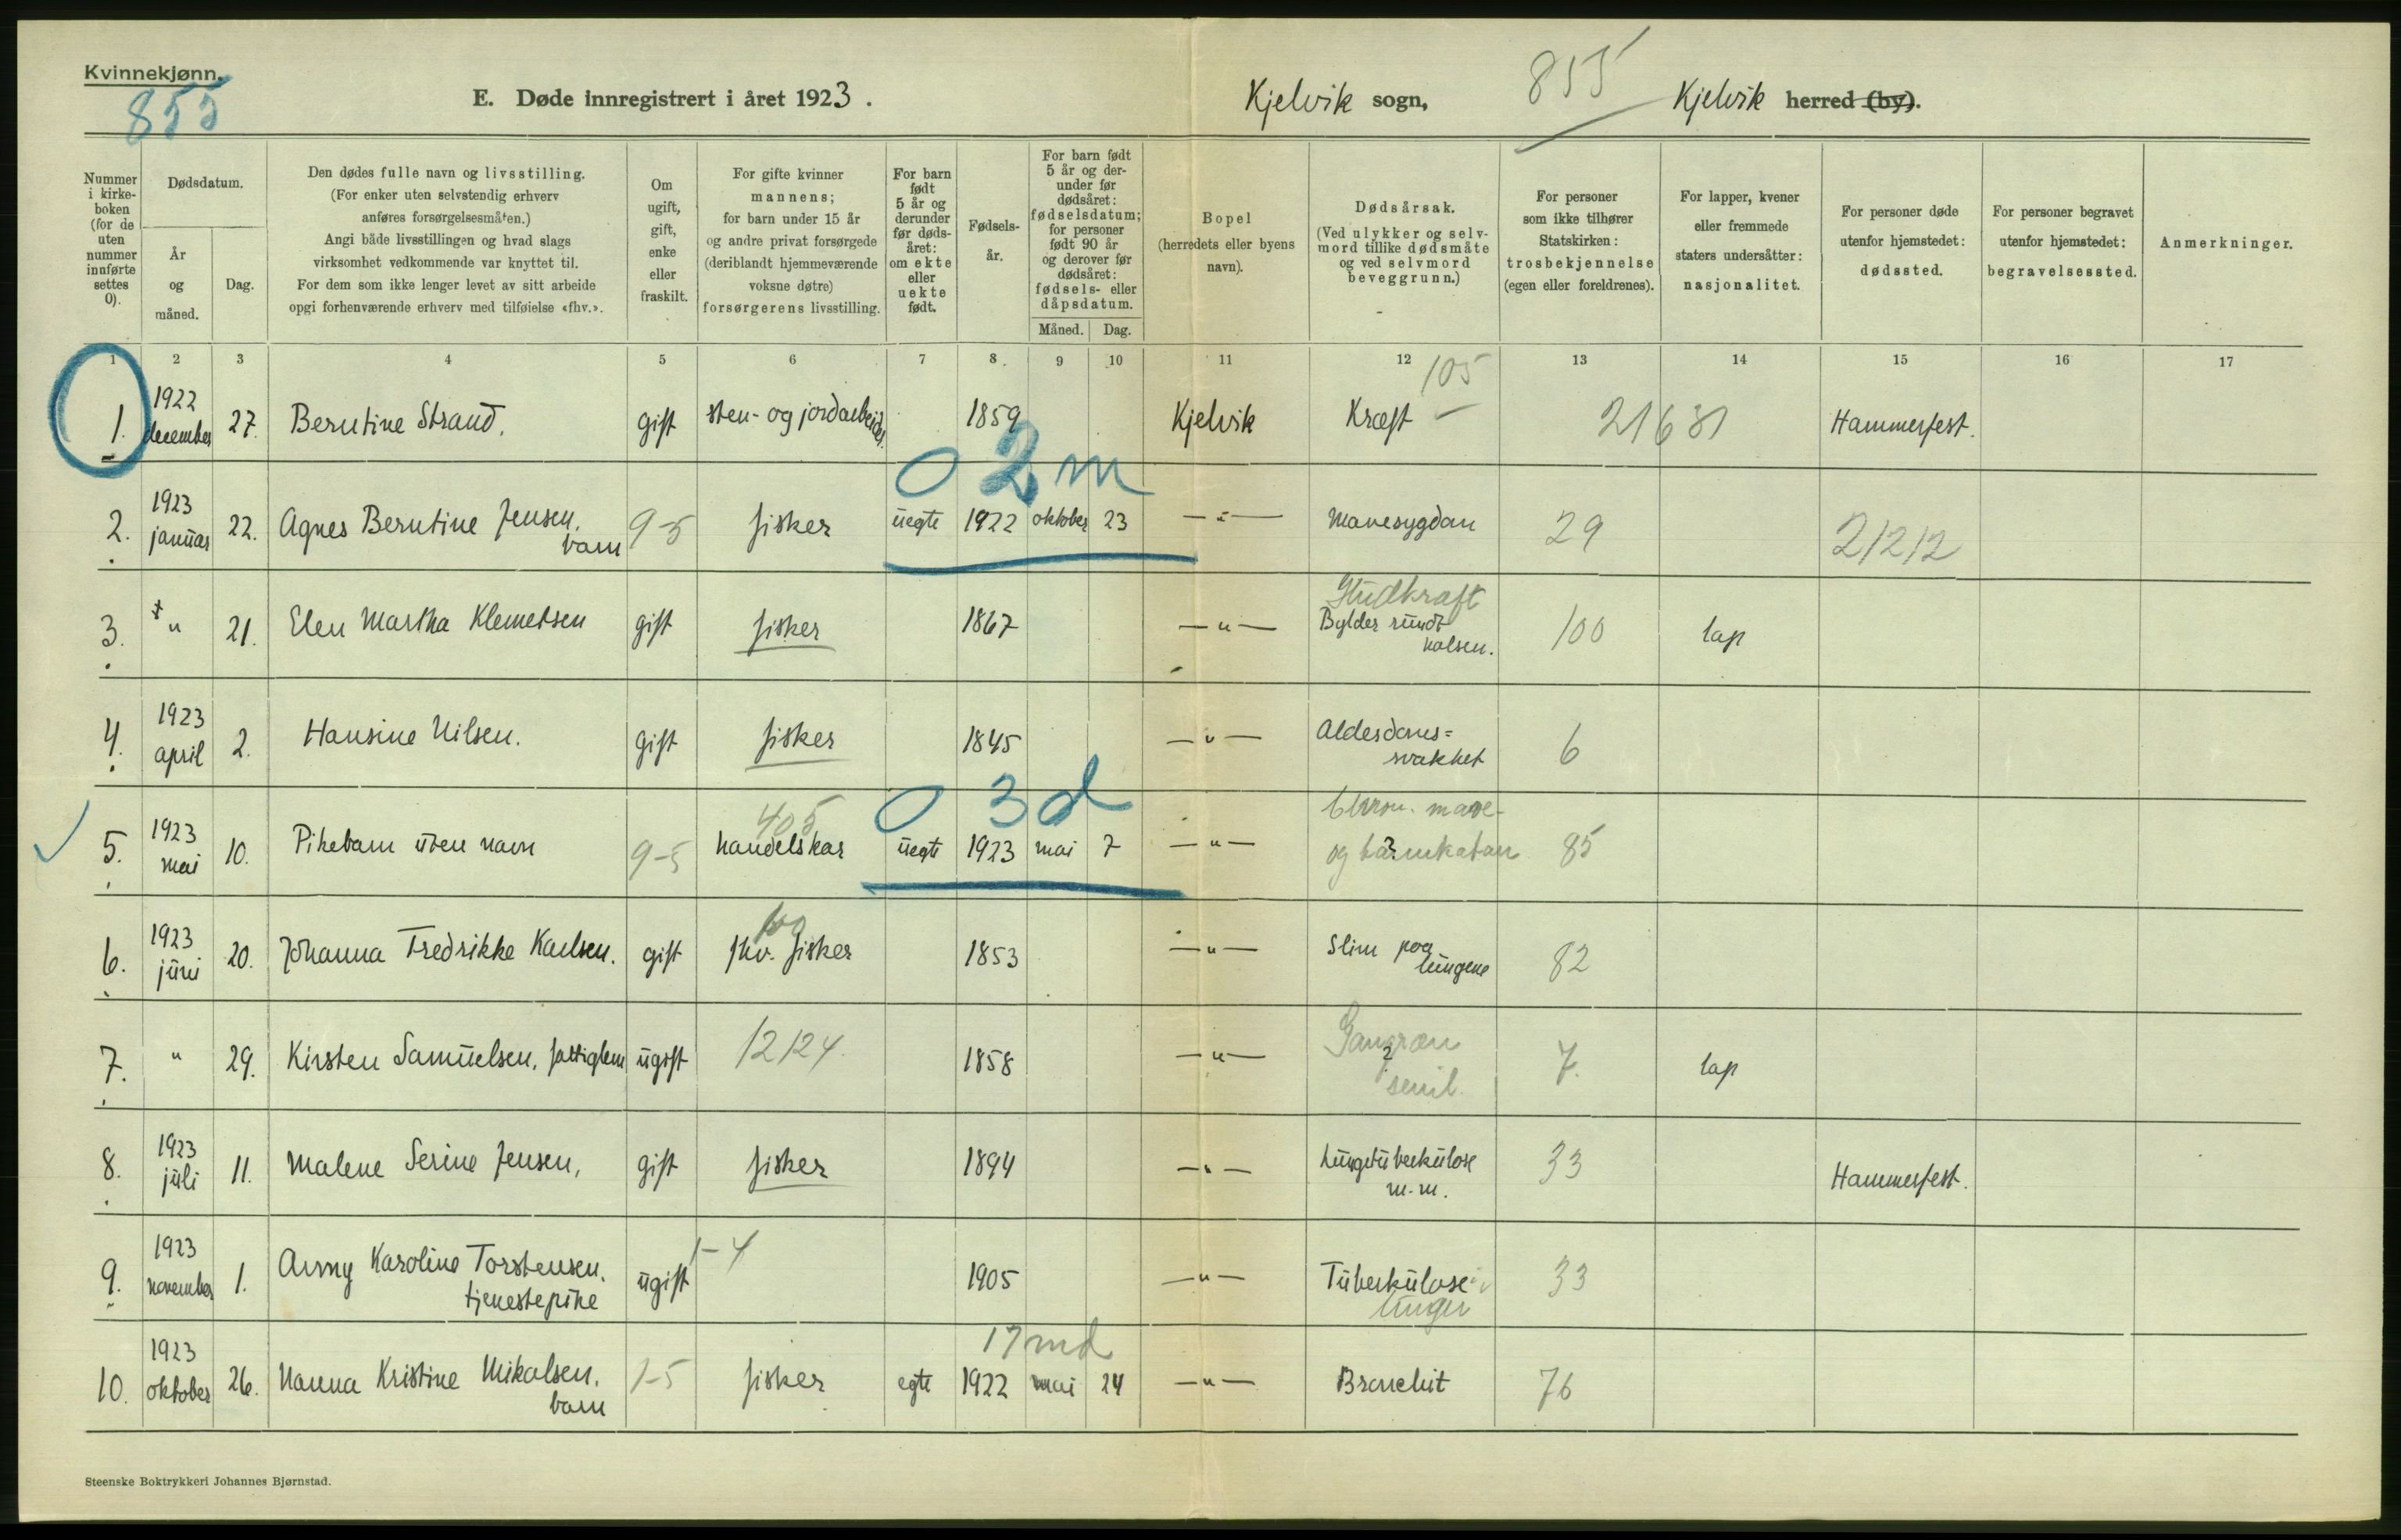 Kvinnekjønn.
855
E. Døde innregistrert i året 1923.
Kjelvik sogn,
855
Kjelvik herred (by).
Nummer i kirke-boken (for de uten nummer innførte settes 0).
Dødsdatum.
År og måned.
Dag.
Den dødes fulle navn og livsstilling.
(For enker uten selvstendig erhverv
anføres forsørgelsesmåten.)
Angi både livsstillingen og hvad slags
virksomhet vedkommende var knyttet til.
For dem som ikke lenger levet av sitt arbeide
opgi forhenværende erhverv med tilføielse «fhv.».
Om ugift, gift, enke eller fraskilt.
For gifte kvinner
mannens;
for barn under 15 år
og andre privat forsørgede
(deriblandt hjemmeværende
voksne døtre)
forsørgerens livsstilling.
For barn født 5 år og derunder før døds-året: om ekte eller uekte født.
Fødsels-år.
For barn født 5 år og der-under før dødsåret: fødselsdatum; for personer født 90 år og derover før dødsåret: fødsels- eller dåpsdatum.
Måned. Dag.
Bopel
(herredets eller byens
navn).
Dødsårsak.
(Ved ulykker og selv-
mord tillike dødsmåte
og ved selvmord
beveggrunn.)
For personer
som ikke tilhører
Statskirken:
trosbekjennelse
(egen eller foreldrenes).
For lapper, kvener
eller fremmede
staters undersåtter:
nasjonalitet.
For personer døde
utenfor hjemstedet:
dødssted.
For personer begravet
utenfor hjemstedet:
begravelsessted.
Anmerkninger.
1 2 3 4 5 6 7 8 9 10 11 12 13 14 15 16 17
105
1. 1922 december 27. Berntine Strand. gift sten- og jordarbeider. 1859 Kjelvik Kræft — 21631 Hammerfest.
0 2 m
2. 1923 januar 22. Agnes Berntine Jensen. barn 9-5 fisker uegte 1922 oktober 23 —〃— Mavesygdom 29 21212
3. 〃 21. Elen Martha Klemetsen gift fisker 1867 —〃— Hudkraft Bylder rundt halsen. 100 lap
4. 1923 april 2. Hansine Nilsen. gift fisker 1845 —〃— Alderdoms= svakhet 6
0 3 d
5. 1923 mai 10. Pikebarn uten navn 9-5 405 handelskar uegte 1923 mai 7 —〃— Chron. mave- og tarmkatarr 85
6. 1923 juni 20. Johanna Fredrikke Karlsen. gift fhv. fisker 1853 —〃— Slim paa lungene 82
7. 〃 29. Kirsten Samuelsen, fattiglem ugift 12124 1858 —〃— Gangræn ? senil. 7. lap
8. 1923 juli 11. Malene Serine Jensen, gift fisker 1894 —〃— Lungetuberkulose m.m. 33 Hammerfest.
9. 1923 november 1. Anny Karoline Torstensen. tjenestepike ugift 1-4 1905 —〃— Tuberkulose i lunger 33
17 md
10. 1923 oktober 26. Nanna Kristine Mikalsen. barn 1-5 fisker egte 1922 mai 24 —〃— Bronchit 76
Steenske Boktrykkeri Johannes Bjørnstad.